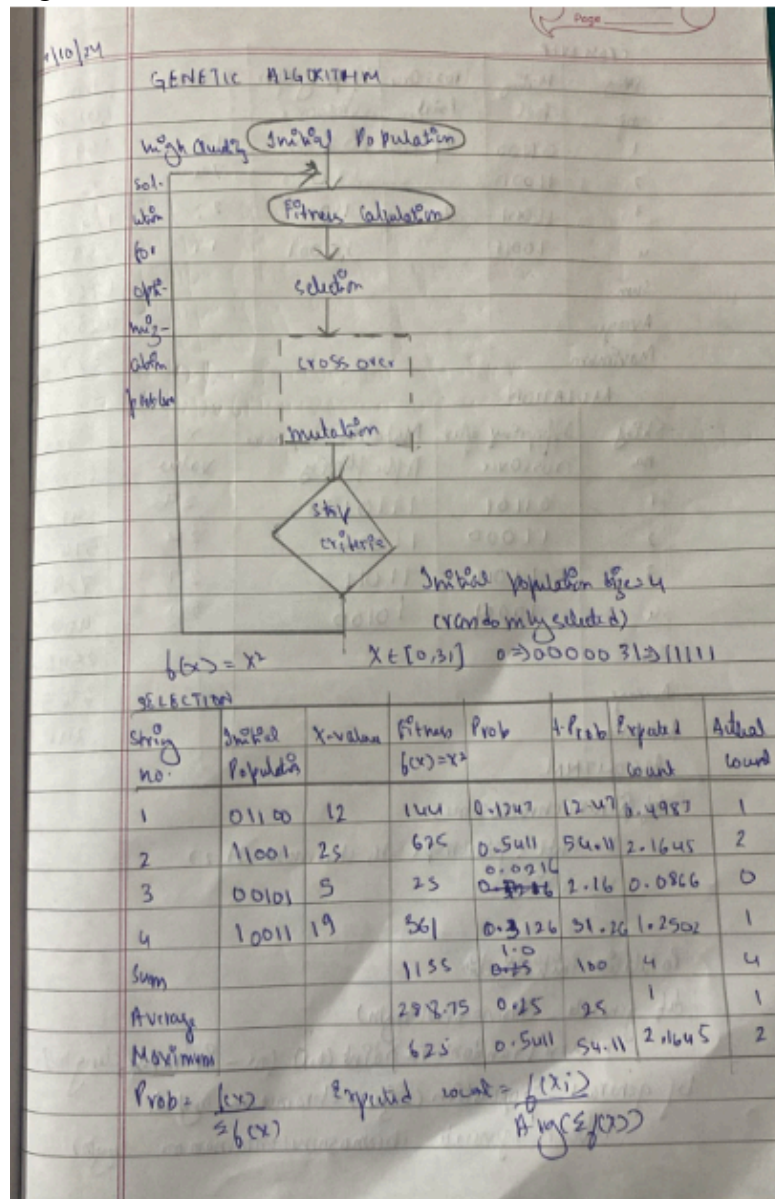 Page
/10/24
GENETIC ALGORITHM
High Quality Initial Population
sol-
ution
for
opti-
miz-
ation
problem
Fitness Calculation
selection
cross over
mutation
stop
criteria
Initial population size = 4
(randomly selected)
f(x) = x² X ∈ [0,31] 0⇒00000 31⇒11111
SELECTION
String no. Initial Population X-value Fitness f(x)=x² Prob %Prob Expected count Actual count
1 01100 12 144 0.1247 12.47 0.4987 1
2 11001 25 625 0.5411 54.11 2.1645 2
3 00101 5 25 0.0216 2.16 0.0866 0
4 10011 19 361 0.3126 31.26 1.2502 1
Sum 1155 1.0 100 4 4
Average 288.75 0.25 25 1 1
Maximum 625 0.5411 54.11 2.1645 2
Prob = f(x) / Σf(x) Expected count = f(xi) / Avg(Σf(x))